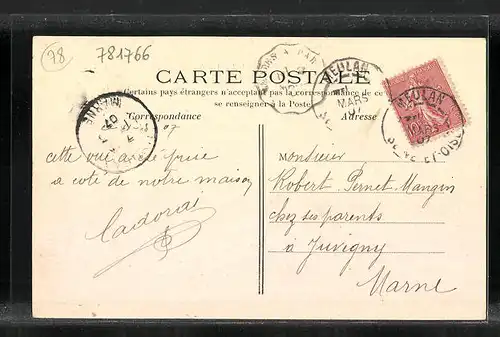 78
781766
CARTE POSTALE
Certains pays étrangers n'acceptent pas la correspondance de ce
se renseigner à la Poste
Correspondance
Adresse
MEULAN
MARS
MEULAN
SEINE-ET-OISE
MARNE
07
cette vue a été prise
a coté de notre maison
Monsieur
Robert Pernet-Mangin
chez ses parents
à Juvigny
Marne